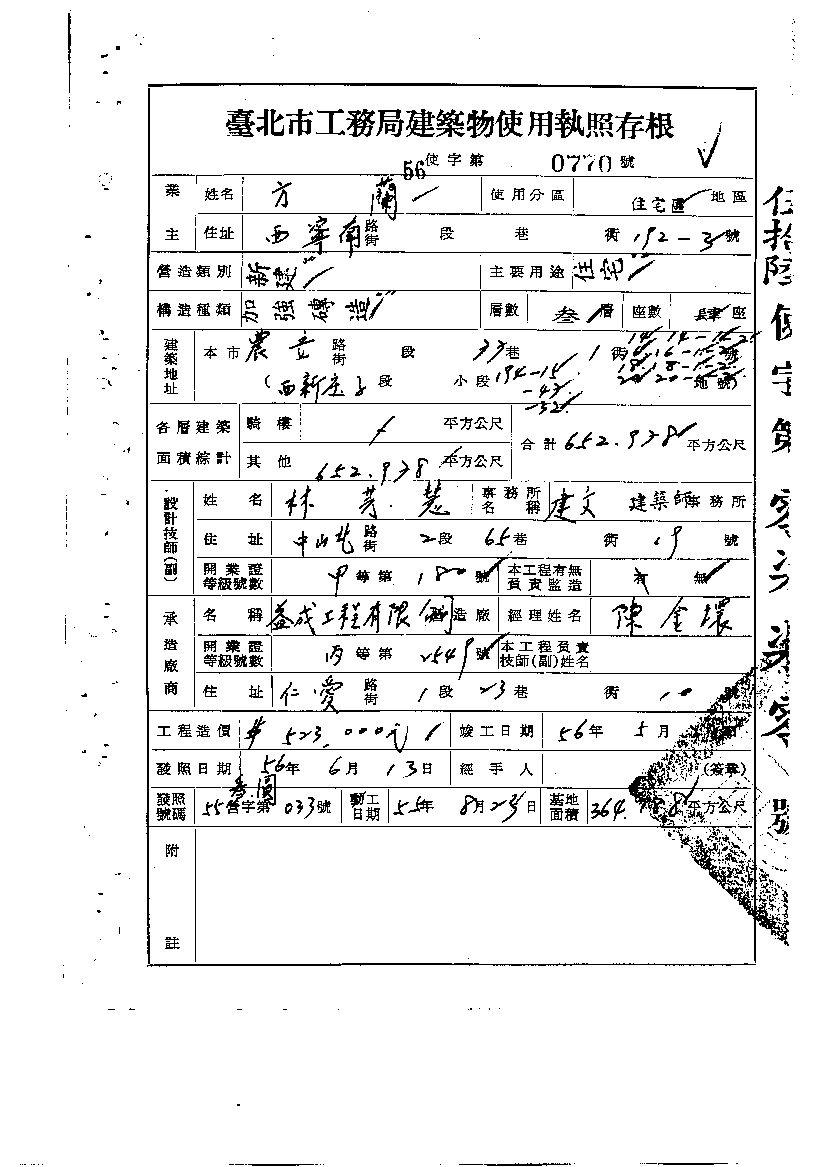 臺北市工務局建築物使用執照存根
56使字第 0770 號
業主 姓名 方 蘭 使用分區 住宅區 地區
住址 西寧南 路街 段 巷 衖 192-3 號
營造類別 新建 主要用途 住宅
構造種類 加強磚造 層數 叁 層 座數 肆 座
建築地址 本市 農安 路街 段 33巷 1衖 號
(西新庄子段 小段 194-15 地號)
-43
-32
各層建築面積綜計 騎樓 平方公尺 合計 652.938 平方公尺
其他 652.938 平方公尺
設計技師(副) 姓名 林芳慧 事務所名稱 建文 建築師事務所
住址 中山北 路街 2段 65巷 衖 19 號
開業證等級號數 甲等第 180 號 本工程有無負責監造 有 無
承造廠商 名稱 益成工程有限公司 造廠 經理姓名 陳金環
開業證等級號數 丙等第 2549 號 本工程負責技師(副)姓名
住址 仁愛 路街 1段 23巷 衖 10 號
工程造價 $ 523,000元 竣工日期 56年 5月
發照日期 56年 6月 13日 經手人 (簽章)
發照號碼 55營字第 033號 動工日期 55年 8月23日 基地面積 364. 平方公尺
附註
伍拾陸使字第零柒柒零號